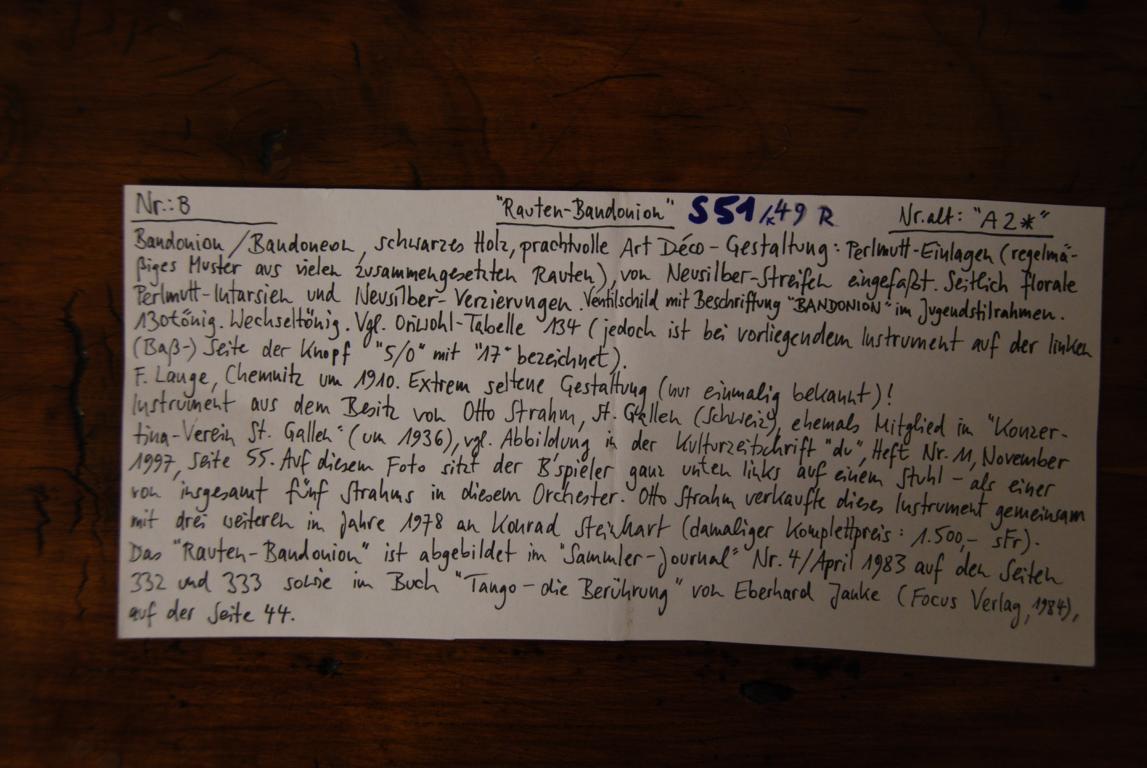 Nr.: B "Rauten-Bandonion" S51/49 R Nr. alt: "A2*"
Bandonion / Bandoneon, schwarzes Holz, prachtvolle Art Déco-Gestaltung: Perlmutt-Einlagen (regelmä-
ßiges Muster aus vielen zusammengesetzten Rauten), von Neusilber-Streifen eingefaßt. Seitlich florale
Perlmutt-Intarsien und Neusilber-Verzierungen. Ventilschild mit Beschriftung "BANDONION" im Jugendstilrahmen.
130tönig. Wechseltönig. Vgl. Oriwohl-Tabelle 134 (jedoch ist bei vorliegendem Instrument auf der linken
(Baß-) Seite der Knopf "5/0" mit "17" bezeichnet).
F. Lange, Chemnitz um 1910. Extrem seltene Gestaltung (nur einmalig bekannt)!
Instrument aus dem Besitz von Otto Strahm, St. Gallen (Schweiz), ehemals Mitglied im "Konzer-
tina-Verein St. Gallen" (um 1936), vgl. Abbildung in der Kulturzeitschrift "du", Heft Nr. 11, November
1997, Seite 55. Auf diesem Foto sitzt der B'spieler ganz unten links auf einem Stuhl - als einer
von insgesamt fünf Strahms in diesem Orchester. Otto Strahm verkaufte dieses Instrument gemeinsam
mit drei weiteren im Jahre 1978 an Konrad Steinhart (damaliger Komplettpreis: 1.500,- sFr).
Das "Rauten-Bandonion" ist abgebildet im "Sammler-Journal" Nr. 4/April 1983 auf den Seiten
332 und 333 sowie im Buch "Tango-die Berührung" von Eberhard Janke (Focus Verlag, 1984),
auf der Seite 44.